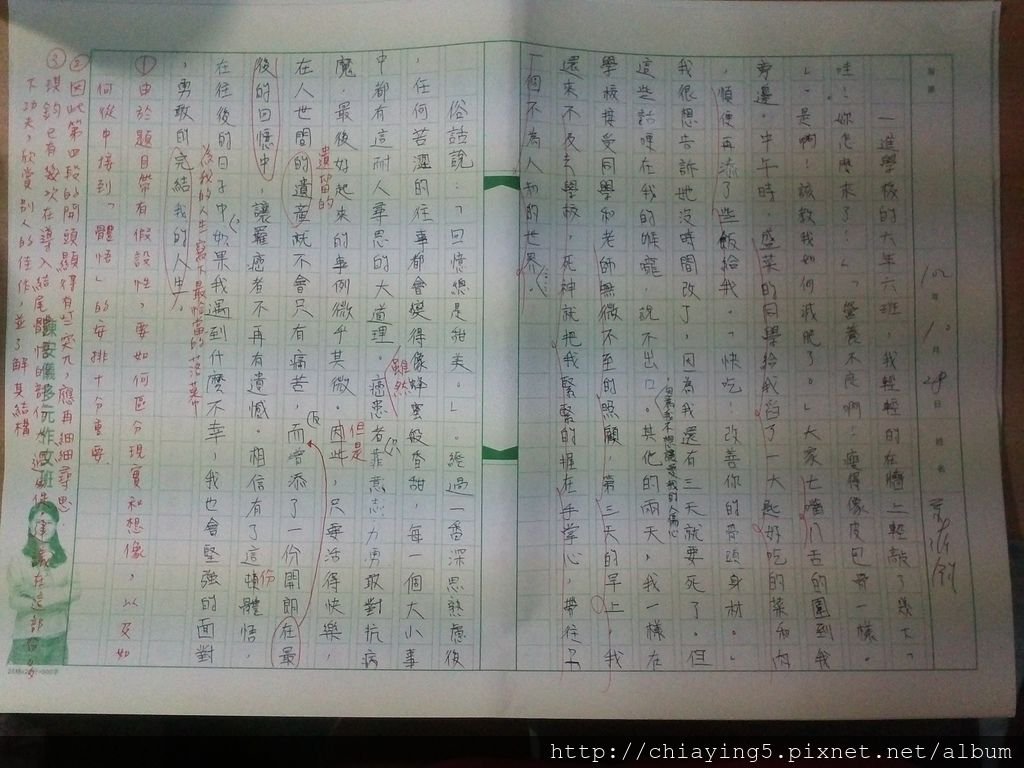 102年10月28日 姓名
一進學校的大年六班，我輕輕的在牆上輕敲了幾下。「
哇！妳怎麼來了？」「營養不良啊！瘦得像皮包骨一樣。
」「是啊！該教我如何減肥了。」大家七嘴八舌的圍到我
旁邊。中午時，盛菜的同學給我舀了一大匙好吃的菜和肉
，順便再添了些飯給我。「快吃，改善你的骨頭身材。」
我很想告訴她沒時間改了，因為我還有三天就要死了。但
這些話哽在我的喉嚨，說不出口。其他的兩天，我一樣在
學校接受同學和老師無微不至的照顧，第三天的早上，我
還來不及去學校，死神就把我緊緊的握在手掌心，帶往了
一個不為人知的世界。
俗話說：「回憶總是甜美。」，經過一番深思熟慮後
，任何苦澀的往事都會變得像蜂蜜般香甜，每一個大小事
中都有這耐人尋思的大道理。癌患者靠意志力勇敢對抗病
雖然
魔，最後好起來的事例微乎其微。因此，只要活得快樂，
但是
在人世間的遺產就不會只有痛苦，而會添了一份開朗在最
遺留的
後的回憶中，讓罹癌者不再有遺憾。相信有了這頓體悟，
份
在往後的日子中，如果我遇到什麼不幸，我也會堅強的面對
，勇敢的完結我的人生。
為我的人生寫下最恰當的落幕
①由於題目帶有假設性，要如何區分現實和想像，以及如
何從中接到「體悟」的安排十分重要
②因此第四段的開頭顯得有些突兀，應再細細尋思
③琪鈞已有幾次在導入結尾體悟的部份
下功夫，欣賞別人的佳作，並了解其結構
陳安儀多元作文班
http://chiaying5.pixnet.net/album